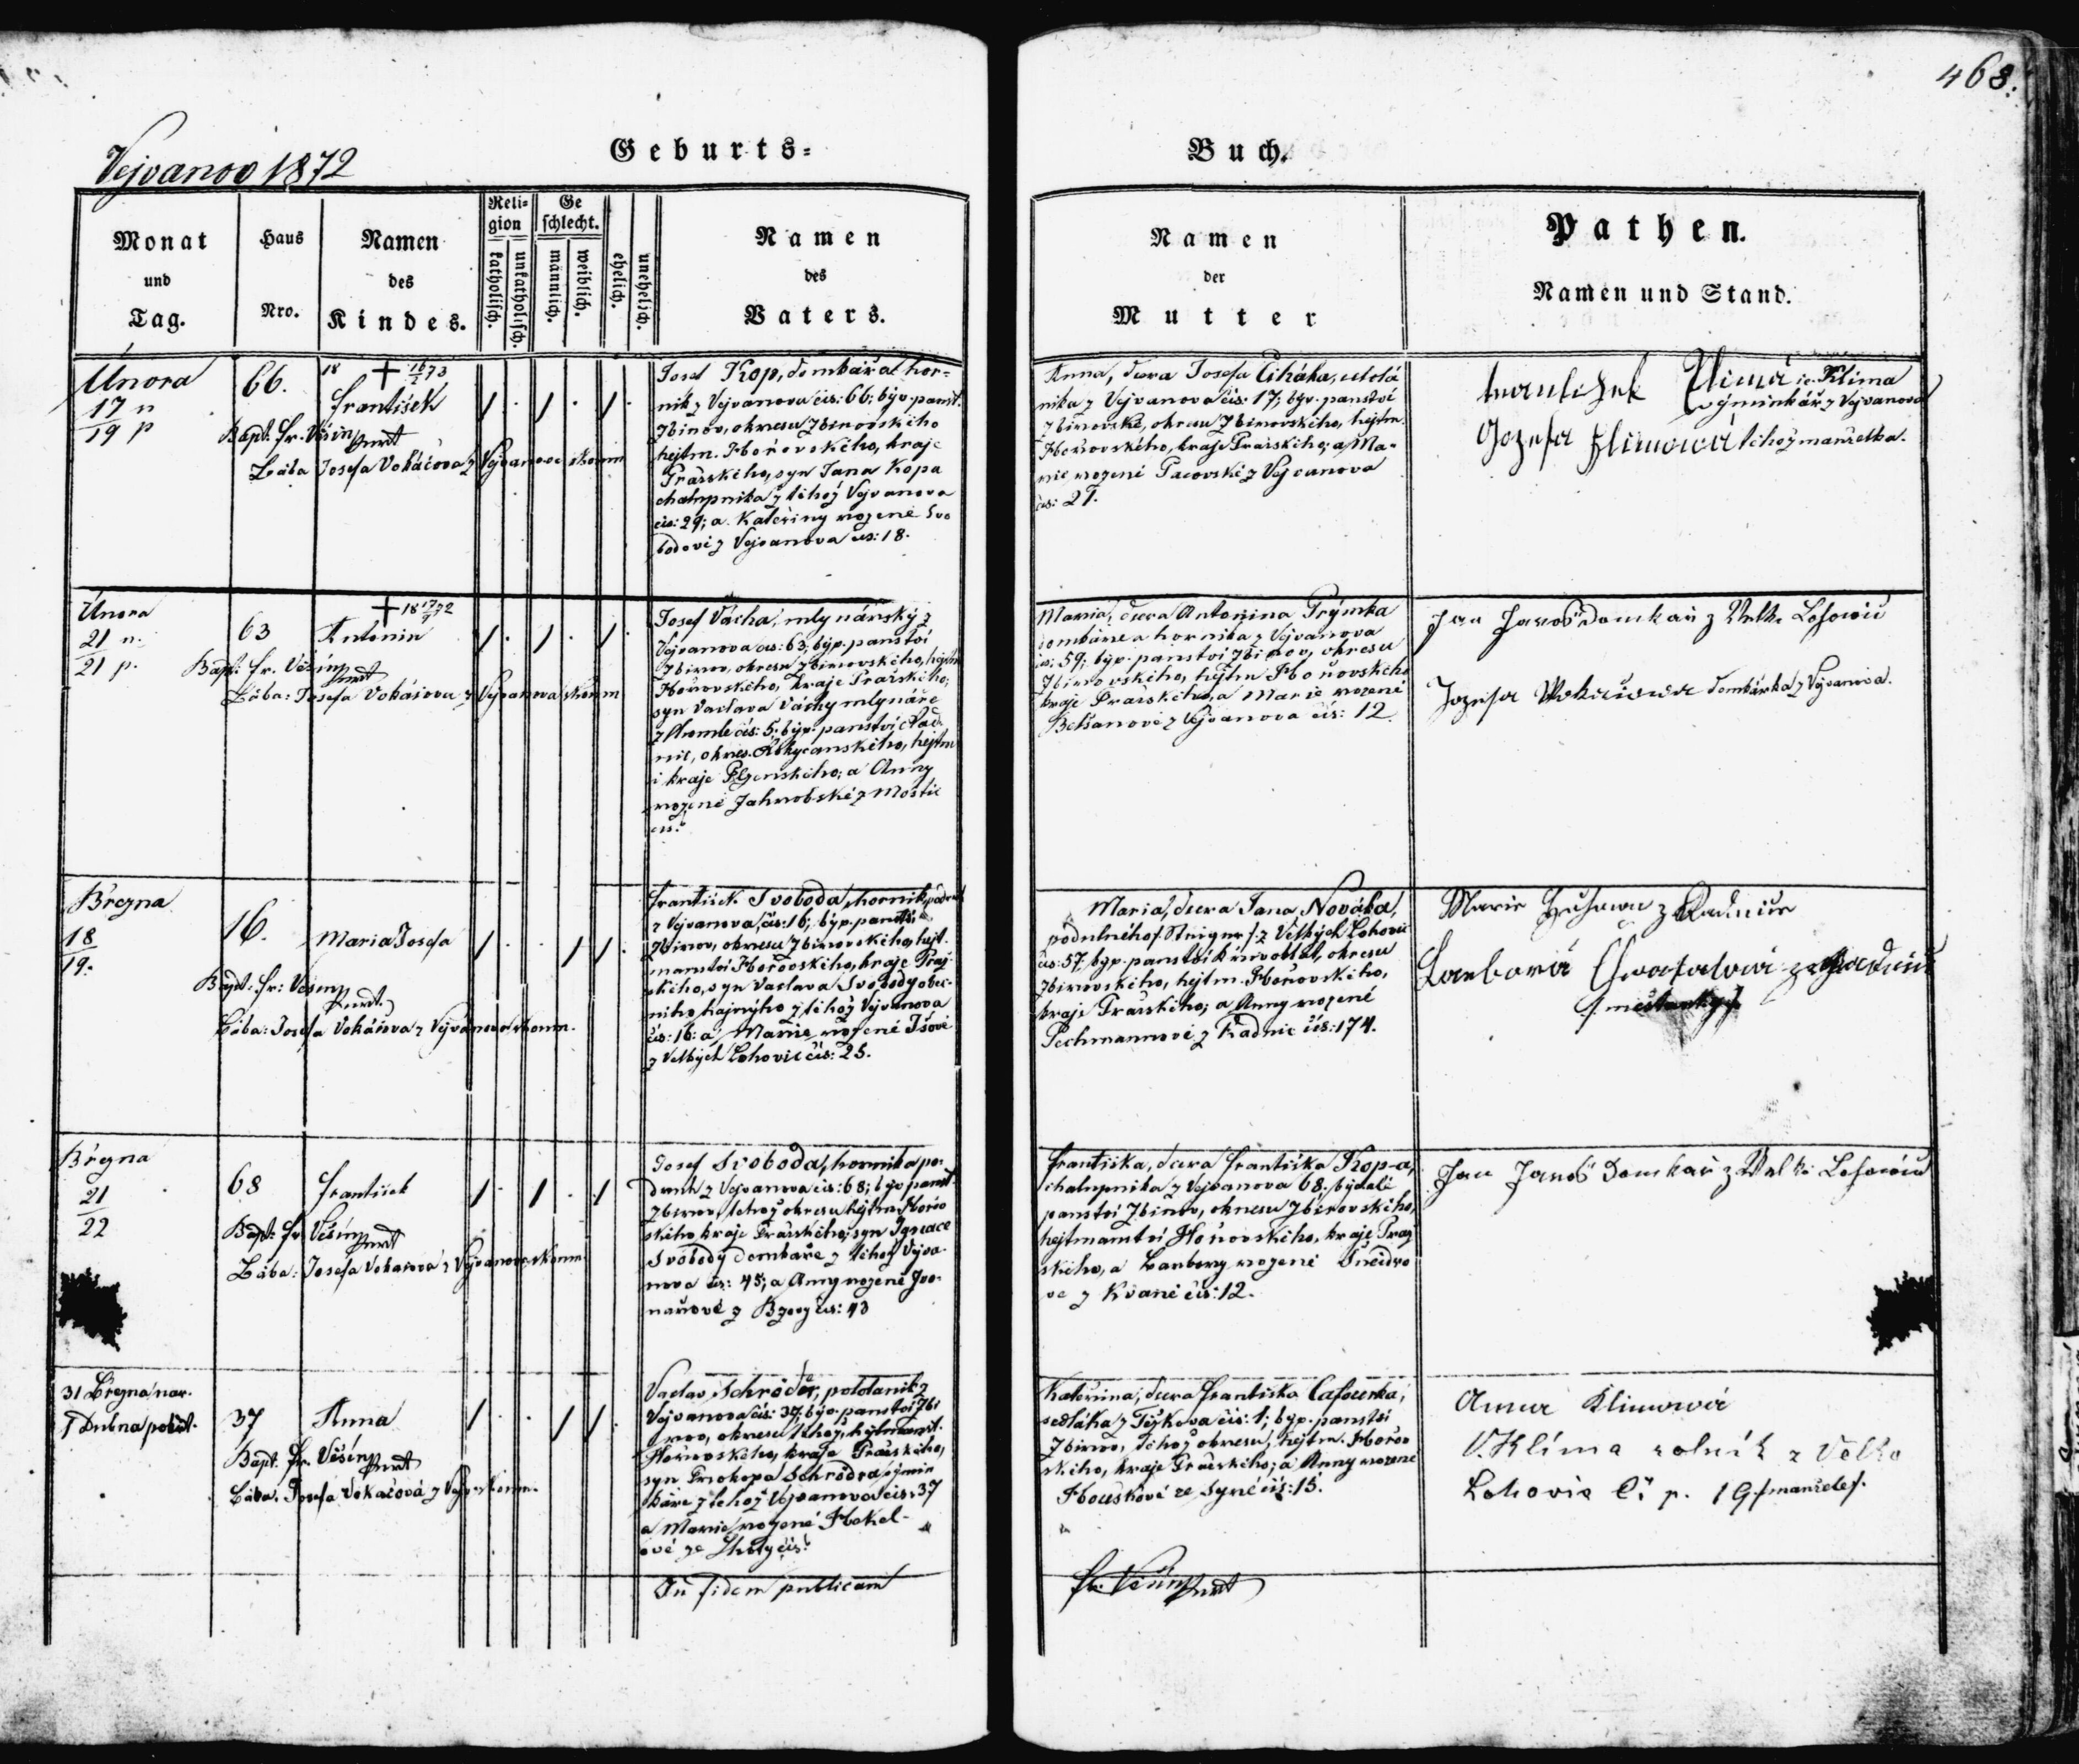 468.
Vejvanov 1872
Geburts=
Buch.
Monat
und
Tag.
Haus
Nro.
Namen
des
Kindes.
Reli=
gion
katholisch.
unkatholisch.
Ge
schlecht.
männlich.
weiblich.
ehelich.
unehelich.
Namen
des
Vaters.
Namen
der
Mutter
Pathen.
Namen und Stand.
Února
17 n
19 p
66.
František
Bapt. fr. Věšín
Bába Josefa Vokáčova z Vejvanova zkoum
Josef Kop, domkář a hor=
ník z Vejvanova čís: 66; býv. panst.
Zbirov, okresu Zbirovského
hejtm. Hořovského, kraje
Pražského, syn Jana Kopa
chalupníka z téhož Vejvanova
čís: 29; a Kateřiny rozené Svo
bodové z Vejvanova čís: 18.
Anna, dcera Josefa Ciháka, sedlá
níka z Vejvanova čís: 17; býv. panství
Zbirovské, okresu Zbirovského, hejtm.
Hořovského, kraje Pražského; a Ma=
rie rozené Pacovské z Vejvanova
čís: 27.
Klima
výminkář z Vejvanova
Jozefa Klimová téhož manželka.
Února
21 n.
21 p.
63
Antonín
Bapt: fr. Věšín
Bába: Josefa Vokáčova z Vejvanova zkoum
Josef Vácha, mlynářský z
Vejvanova čís: 63; býv. panství
Zbirov, okresu Zbirovského, hejtm
Hořovského, kraje Pražského;
syn Václava Váchy mlynáře
z Chomle čís: 5; býv. panství Rad=
nic, okres. Rokycanského, hejtm
i kraje Plzenského; a Anny
rozené Jahnobské z Mostic
čís:
Maria, dcera Antonina Prýmka
domkáře a horníka z Vejvanova
čís; 59; býv. panství Zbirov, okresu
Zbirovského, hejtm Hořovského
kraje Pražského, a Marie rozené
Betšanové z Vejvanova čís: 12
Jan Jaroš Domkař z Velke Lohowic
Jozefa Wokačowa domkářka z Vejvanova.
Března
18
19.
16.
Maria Josefa
Bapt: fr: Věšín
Bába: Josefa Vokáčova z Vejvanova zkoum.
František Svoboda, horník, podruh
z Vejvanova, čís: 16; býv. panství
Zbirov, okresu Zbirovského, hejt.
manství Hořovského, kraje Praž
ského, syn Vaclava Svobody obec=
ního hajného z téhož Vejvanova
čís: 16: a Marie rozené Išové
z Velkých Lohovic čís: 25.
Maria, dcera Jana Nováka,
z Velkých Lohovic
čís: 57, býv. panství Křivoklát, okresu
Zbirovského, hejtm. Hořovského,
kraje Pražského; a Anny rozené
Pechmannové z Radnic čís: 174.
Marie z Radnic
Barbora z Radnic
Března
21
22
68
František
Bapt: fr. Věšín
Bába: Josefa Vokačová z Vejvanova zkoum
Josef Svoboda, horník a po=
druh z Vejvanova čís: 68; býv panst.
Zbirov, téhož okresu hejtm. Hořov
ského, kraje Pražského; syn Ignace
Svobody domkáře z téhož Vejva=
nova čís: 45; a Anny rozené Jvo=
nařové z Bzovy čís: 43
Františka, dcera Františka Kop-a,
chalupníka z Vejvanova 68; bývalé
panství Zbirov, okresu Zbirovského,
hejtmanství Hořovského, kraje Praž
ského, a Barbory rozené Šneidro
ve z Kvaně čís: 12.
Jan Jaroš Domkař z Velke Lohowic
31 Března nar.
1 Dubna pokřt.
37
Anna
Bapt. fr. Věšín
Bába. Josefa Vokačová z Vejv. zkoum.
Vaclav Schröder, pololaník z
Vejvanova čís: 37; býv. panství Zbi
rov, okresu téhož, hejtmanst.
Hořovského, kraje Pražského,
syn Prokopa Schrödra výmin
káře z téhož Vejvanova čís: 37
a Marie rozené Hokel-
ové ze Lhoty čís:
Kateřina, dcera Františka Cafourka,
sedláka z Týškova čís: 1; býv. panství
Zbirov, téhož okresu, hejtm. Hořov
ského, kraje Pražského; a Anny rozené
Houškové ze Syré čís: 15.
Anna Klimowá
V. Klíma rolník z Velko
Lohovic čp. 19 /manželé/.
In fidem publicam
fr. Věšín